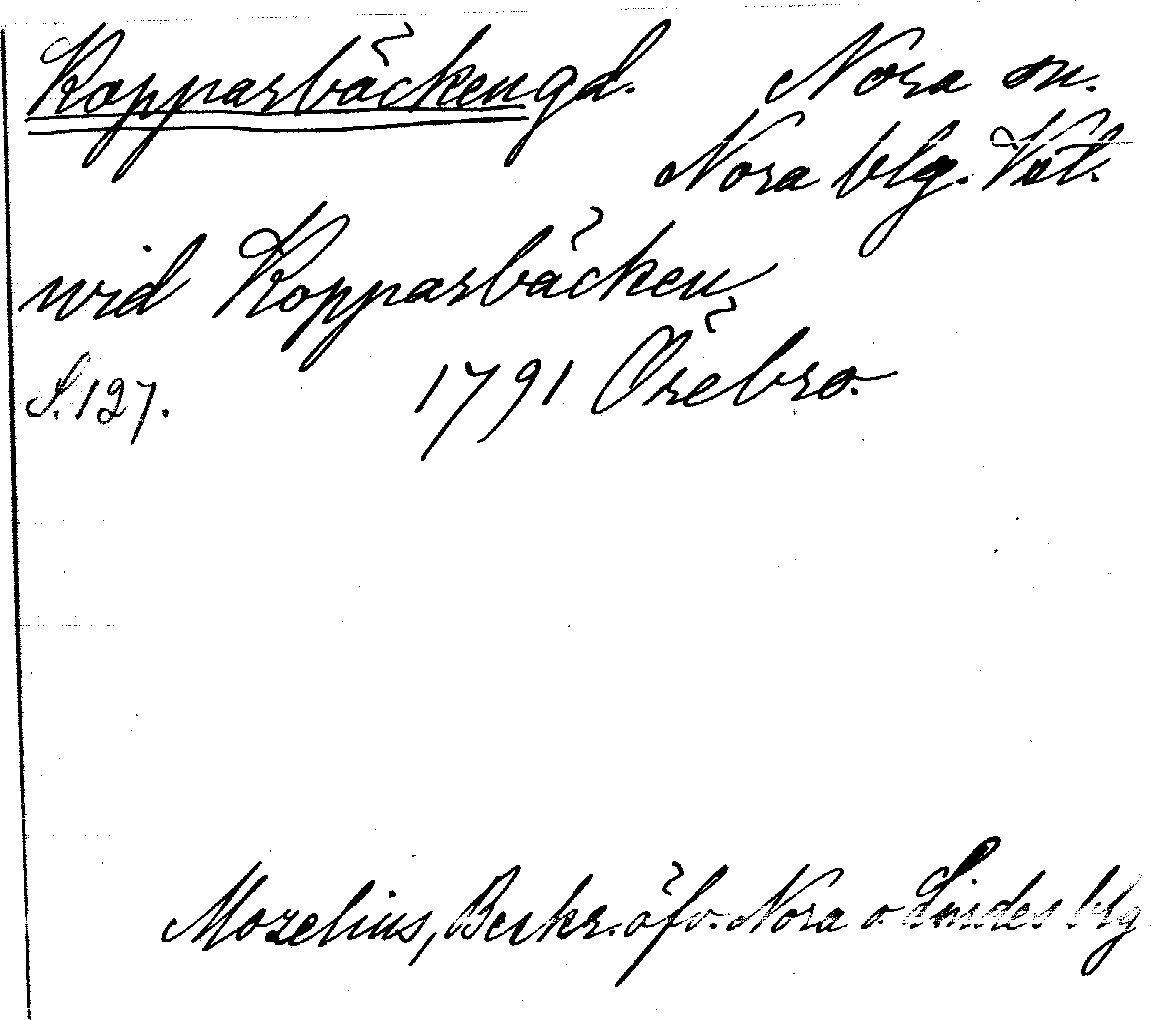 Kopparbäcken gd. Nora sn.
Nora blg. Vstl.
wid Kopparbäcken
S. 127. 1791 Örebro.
Mozelius, Beskr. öfv. Nora o. Lindes blg